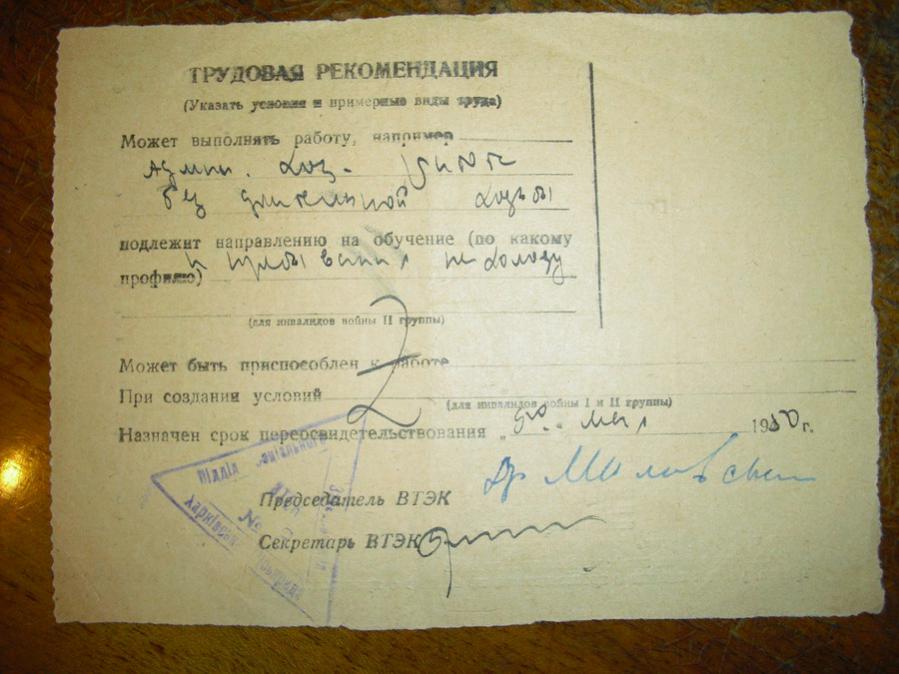 ТРУДОВАЯ РЕКОМЕНДАЦИЯ
(Указать условия и примерные виды труда)
Может выполнять работу, например
Админ. хоз. работ
без длительной ходьбы
подлежит направлению на обучение (по какому
и пребывания на холоду
профилю)
(для инвалидов войны II группы)
Может быть приспособлен к работе
При создании условий
(для инвалидов войны I и II группы)
Назначен срок переосвидетельствования „ мая 1950 г.
Председатель ВТЭК
Секретарь ВТЭК
Відділ соціального
№